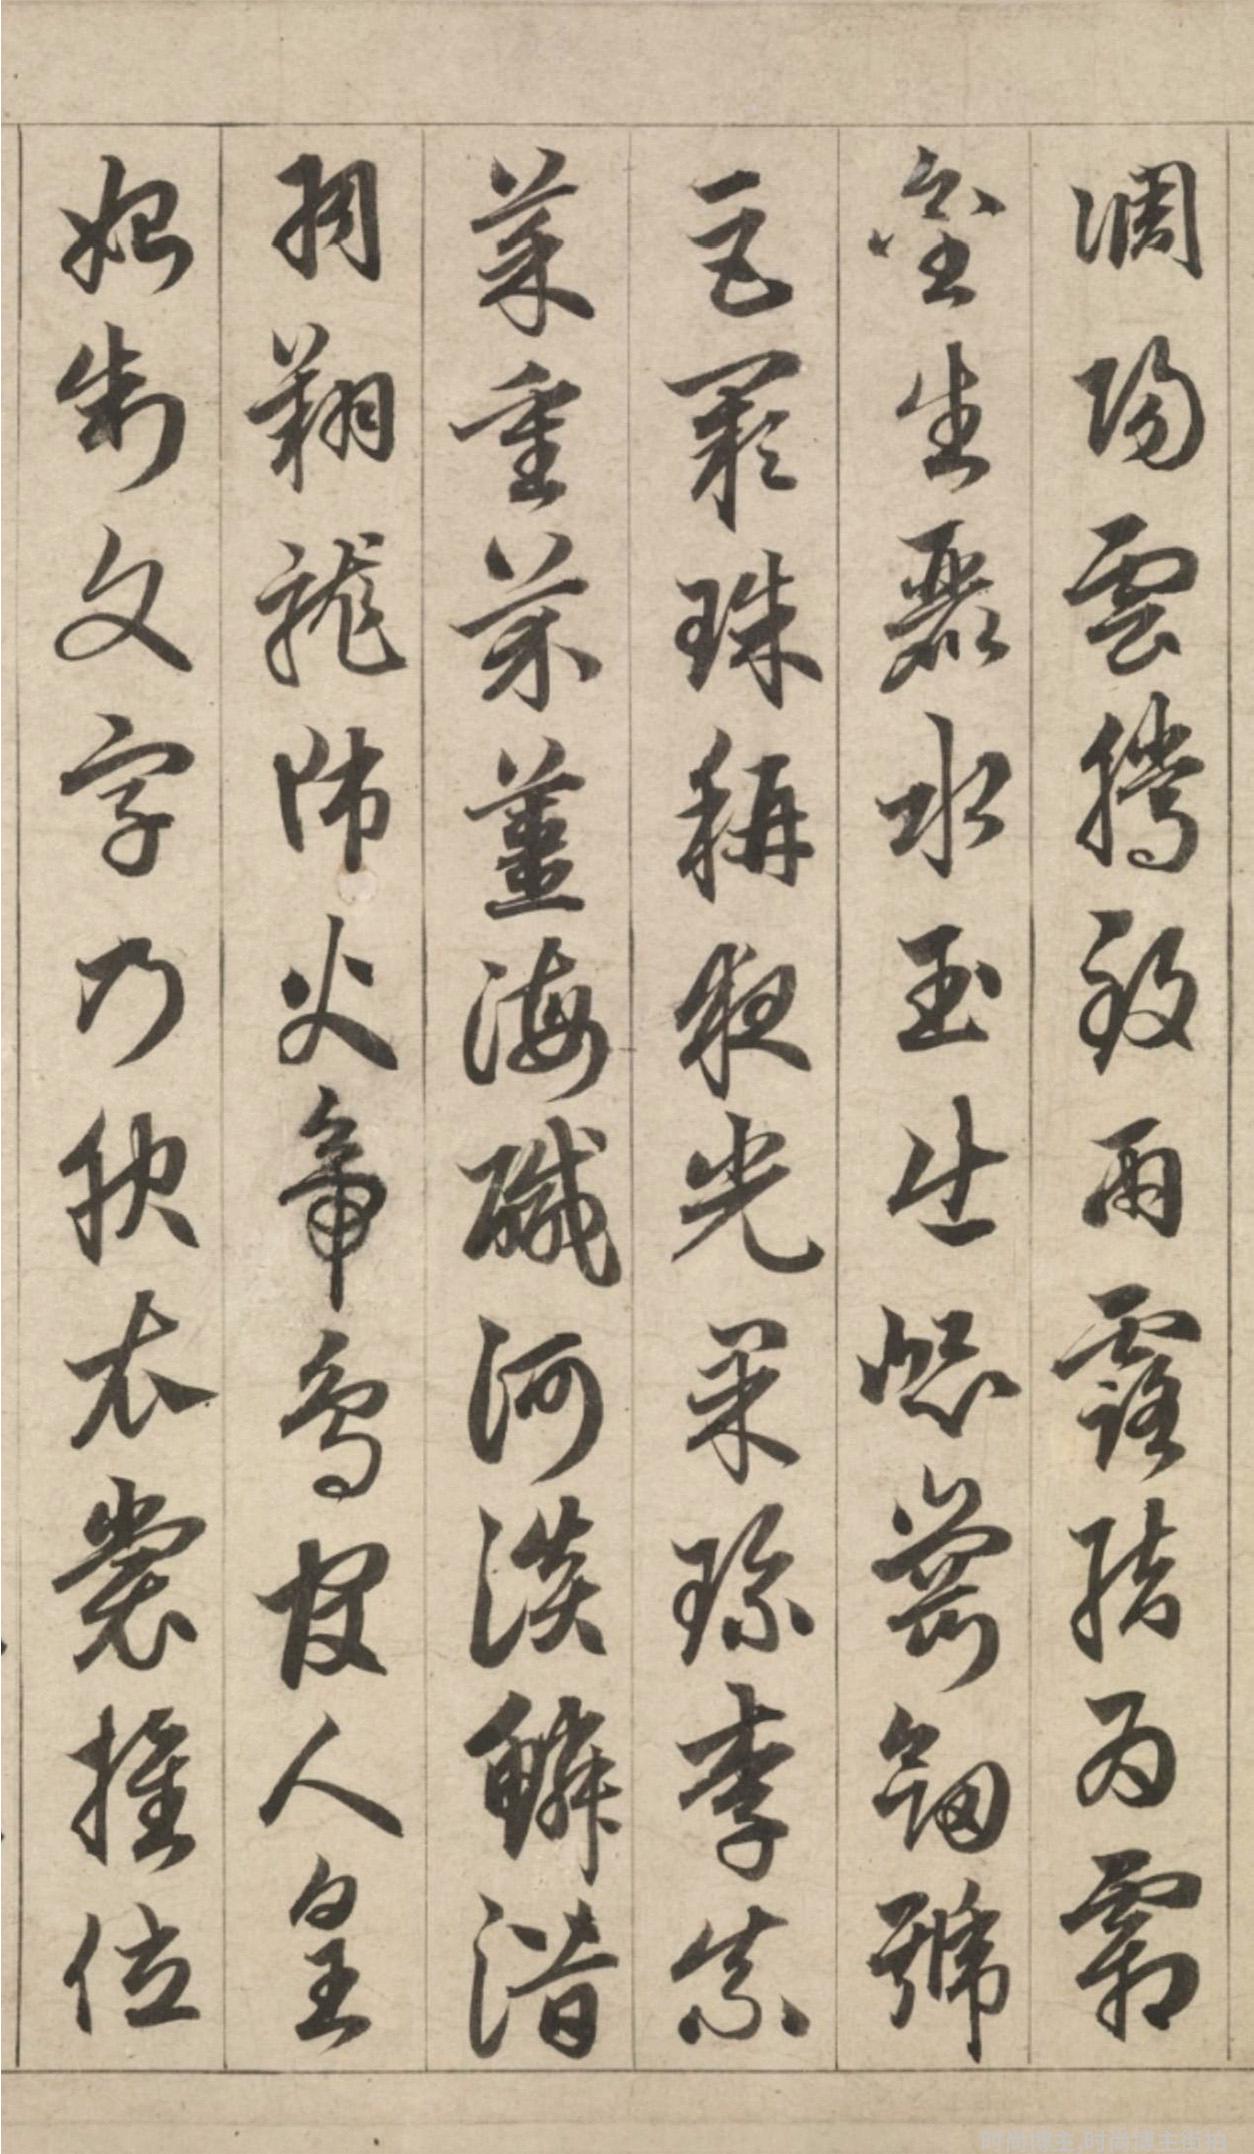 調陽雲騰致雨露結為霜
金生麗水玉出崑崗劍號
巨闕珠稱夜光果珍李柰
菜重芥薑海鹹河淡鱗潛
羽翔龍師火帝鳥官人皇
始制文字乃服衣裳推位